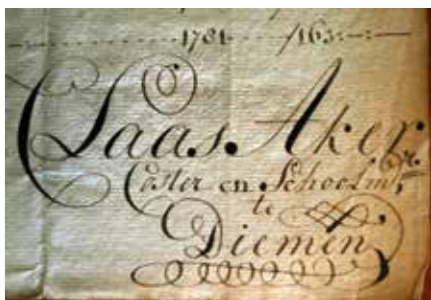 1781
Claas Aker.
Coster en Schoolmr.
te
Diemen